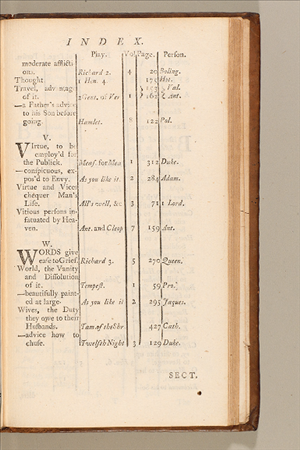 INDEX.
Play. Vol. Page. Person.
moderate afflictions. Richard 2. 4 20 Boling.
Thought 1 Hen. 4. Hot.
Travel, advantage
of it. 2 Gent. of Ver 1 Val. Ant.
—a Father's advice
to his Son before
going. Hamlet. 122 Pol.
V.
VIrtue, to be
employ'd for
the Publick. Meas. for Mea 1 312 Duke.
—conspicuous, ex-
pos'd to Envy. As you like it. 2 284 Adam.
Virtue and Vice
chequer Man's
Life. All's well, &c 3 71 1 Lord.
Vitious persons in-
fatuated by Hea-
ven. Ant. and Cleop 7 159 Ant.
W.
WORDS give
ease to Grief. Richard 3. 5 270 Queen.
World, the Vanity
and Dissolution
of it. Tempest. 1 59 Pro.
—beautifully paint-
ed at large. As you like it 2 295 Jaques.
Wives, the Duty
they owe to their
Husbands. Tam. of the Shr. 427 Cath.
—advice how to
chuse. Twelfth Night 3 129 Duke.
SECT.